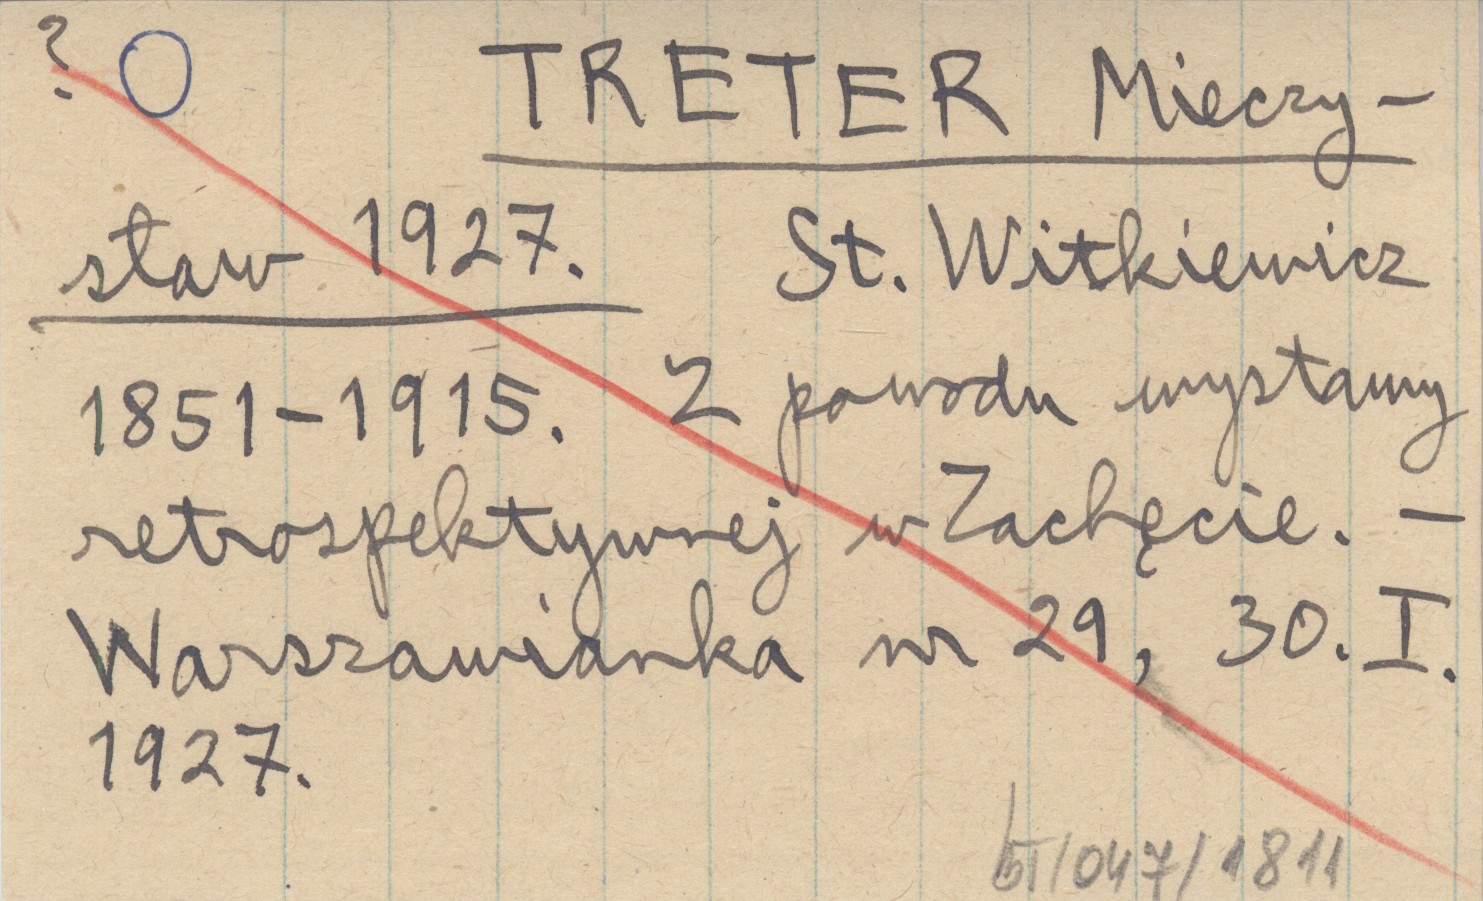 ? O TRETER Mieczy-
sław 1927. St. Witkiewicz
1851-1915. Z powodu wystawy
retrospektywnej w Zachęcie. —
Warszawianka nr 29, 30. I.
1927.
/047/1811